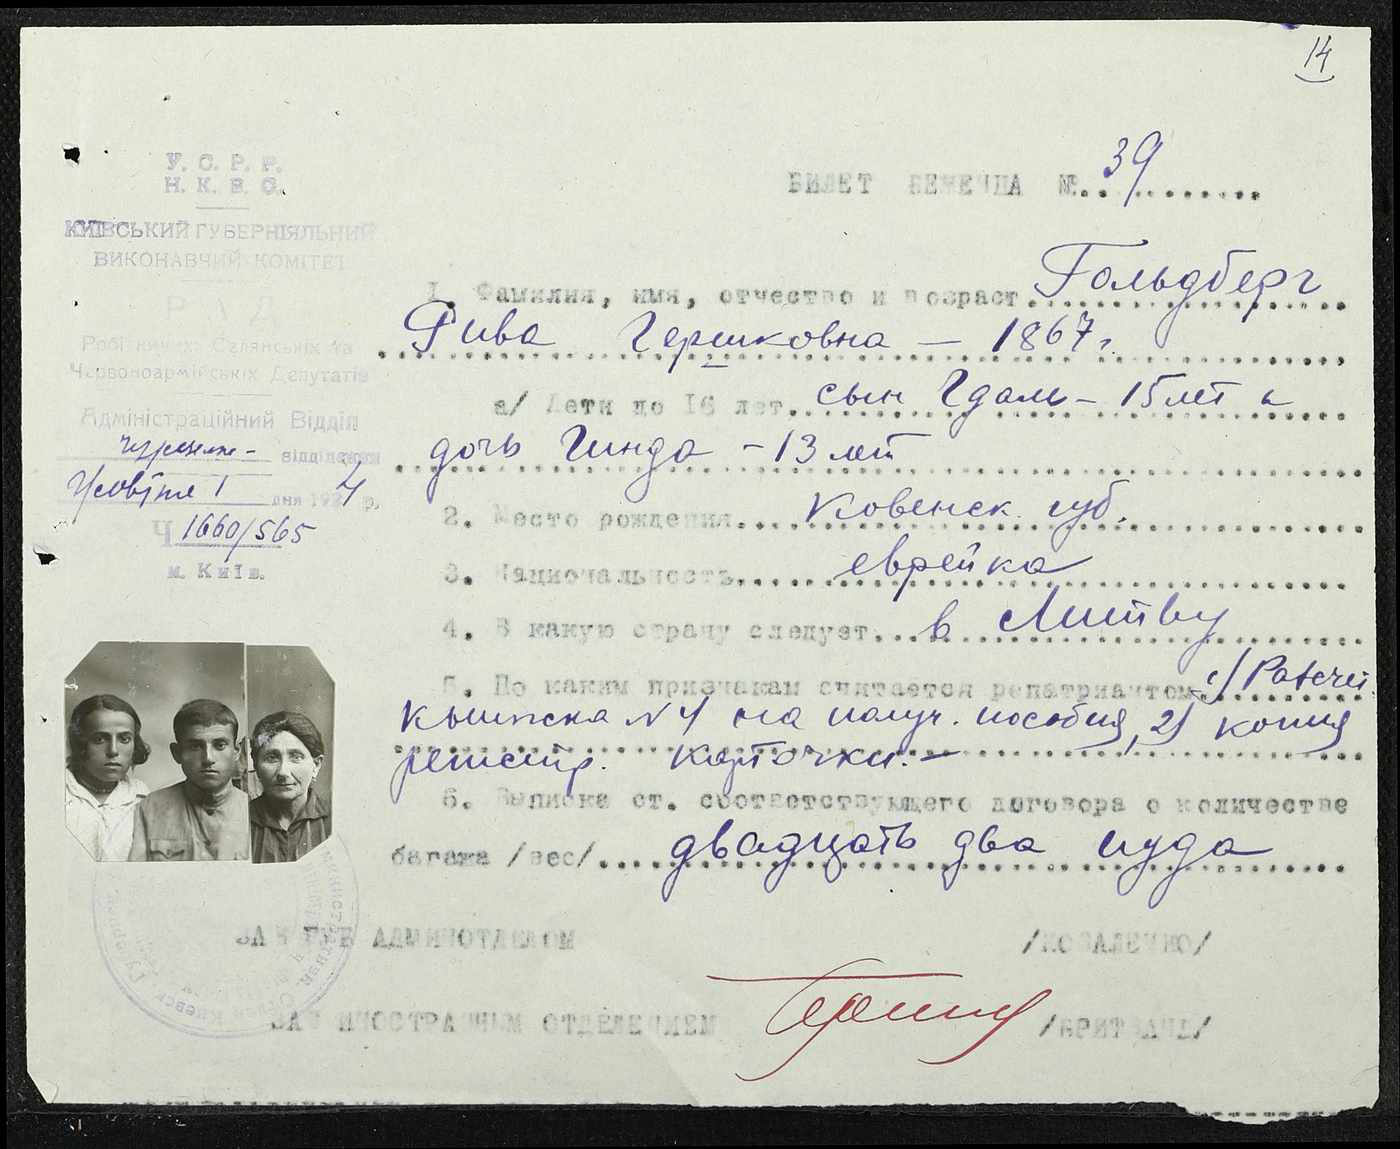 14
У. С. Р. Р.
Н. К. В. С.
КИЇВСЬКИЙ ГУБЕРНІЯЛЬНИЙ
ВИКОНАВЧИЙ КОМІТЕТ
РАД
Робітничих Селянських та
Червоноармійських Депутатів
Адміністраційний Відділ
відділення
Жовтня 1 дня 1924 р.
Ч 1660/565
м. Київ.
БИЛЕТ БЕЖЕНЦА №. 39
1. Фамилия, имя, отчество и возраст Гольдберг
Рива Гершковна – 1867 г.
а/ Дети до 16 лет. сын Гдаль – 15 лет и
дочь Гинда – 13 лет
2. Место рождения Ковенск. губ.
3. Национальность еврейка
4. В какую страну следует в Литву
5. По каким признакам считается репатриантом 1/
на получ. пособия, 2/ копия
регистр. карточки. –
6. Выписка ст. соответствующего договора о количестве
багажа /вес/ двадцать два пуда
ЗАВ ГУБ АДМИНОТДЕЛОМ /КОВАЛЕНКО/
ЗАВ ИНОСТРАННЫМ ОТДЕЛЕНИЕМ